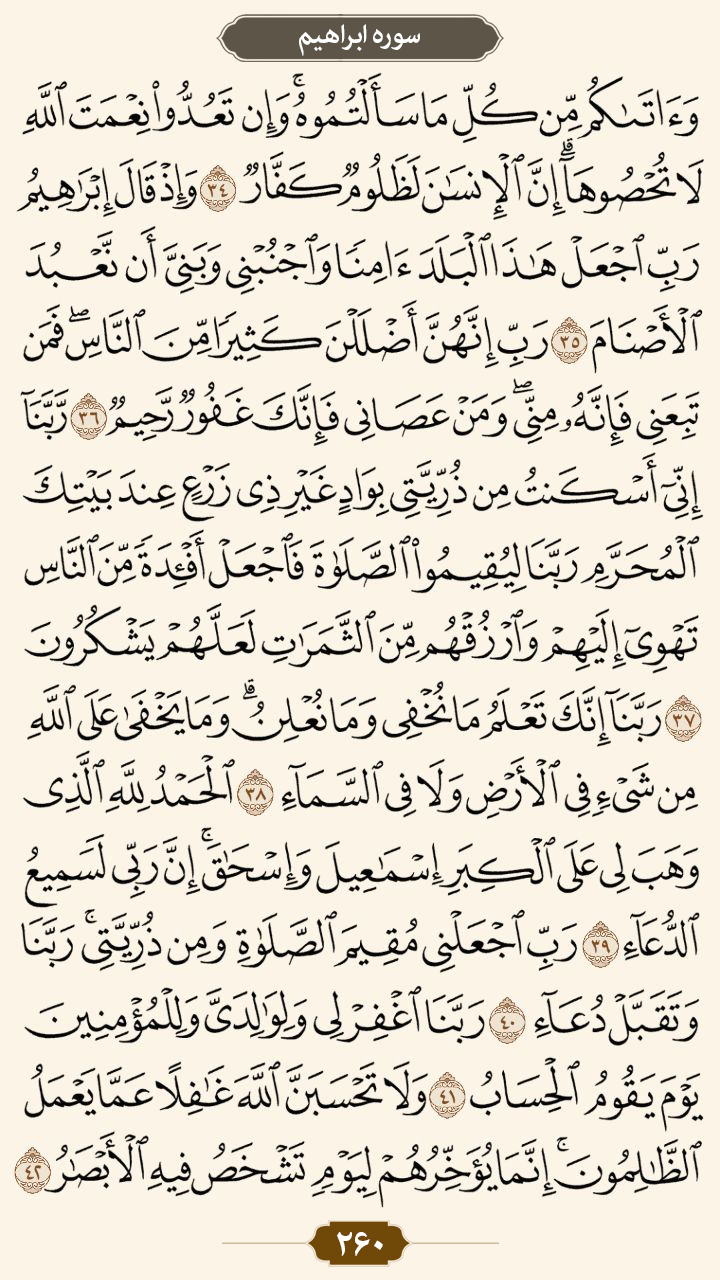 سوره ابراهیم
وَءَاتَىٰكُم مِّن كُلِّ مَا سَأَلْتُمُوهُ ۚ وَإِن تَعُدُّوا۟ نِعْمَتَ ٱللَّهِ
لَا تُحْصُوهَآ ۗ إِنَّ ٱلْإِنسَٰنَ لَظَلُومٌ كَفَّارٌ ٣٤ وَإِذْ قَالَ إِبْرَٰهِيمُ
رَبِّ ٱجْعَلْ هَٰذَا ٱلْبَلَدَ ءَامِنًا وَٱجْنُبْنِى وَبَنِىَّ أَن نَّعْبُدَ
ٱلْأَصْنَامَ ٣٥ رَبِّ إِنَّهُنَّ أَضْلَلْنَ كَثِيرًا مِّنَ ٱلنَّاسِ ۖ فَمَن
تَبِعَنِى فَإِنَّهُۥ مِنِّى ۖ وَمَنْ عَصَانِى فَإِنَّكَ غَفُورٌ رَّحِيمٌ ٣٦ رَّبَّنَآ
إِنِّىٓ أَسْكَنتُ مِن ذُرِّيَّتِى بِوَادٍ غَيْرِ ذِى زَرْعٍ عِندَ بَيْتِكَ
ٱلْمُحَرَّمِ رَبَّنَا لِيُقِيمُوا۟ ٱلصَّلَوٰةَ فَٱجْعَلْ أَفْـِٔدَةً مِّنَ ٱلنَّاسِ
تَهْوِىٓ إِلَيْهِمْ وَٱرْزُقْهُم مِّنَ ٱلثَّمَرَٰتِ لَعَلَّهُمْ يَشْكُرُونَ
٣٧ رَبَّنَآ إِنَّكَ تَعْلَمُ مَا نُخْفِى وَمَا نُعْلِنُ ۗ وَمَا يَخْفَىٰ عَلَى ٱللَّهِ
مِن شَىْءٍ فِى ٱلْأَرْضِ وَلَا فِى ٱلسَّمَآءِ ٣٨ ٱلْحَمْدُ لِلَّهِ ٱلَّذِى
وَهَبَ لِى عَلَى ٱلْكِبَرِ إِسْمَٰعِيلَ وَإِسْحَٰقَ ۚ إِنَّ رَبِّى لَسَمِيعُ
ٱلدُّعَآءِ ٣٩ رَبِّ ٱجْعَلْنِى مُقِيمَ ٱلصَّلَوٰةِ وَمِن ذُرِّيَّتِى ۚ رَبَّنَا
وَتَقَبَّلْ دُعَآءِ ٤٠ رَبَّنَا ٱغْفِرْ لِى وَلِوَٰلِدَىَّ وَلِلْمُؤْمِنِينَ
يَوْمَ يَقُومُ ٱلْحِسَابُ ٤١ وَلَا تَحْسَبَنَّ ٱللَّهَ غَٰفِلًا عَمَّا يَعْمَلُ
ٱلظَّٰلِمُونَ ۚ إِنَّمَا يُؤَخِّرُهُمْ لِيَوْمٍ تَشْخَصُ فِيهِ ٱلْأَبْصَٰرُ ٤٢
۲۶۰